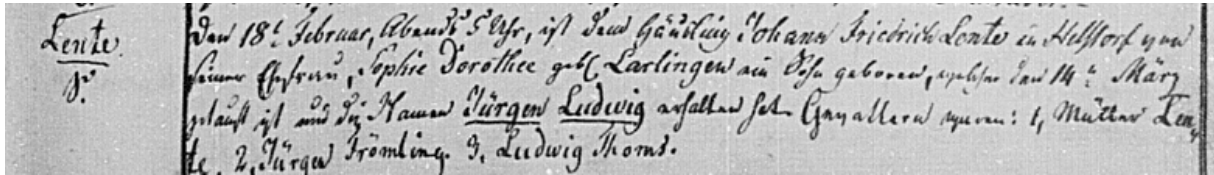 Lente.
Den 18t Februar, Abends 5 Uhr, ist dem Häusling Johann Friedrich Lente in Helstorf von
seiner Ehefrau, Sophie Dorothee geb. Carlingen ein Sohn geboren, welcher den 14ten März
getauft ist und die Namen Jürgen Ludwig erhalten hat. Gevattern waren: 1, Müller Len-
te, 2, Jürgen Frömling. 3, Ludwig Thoms.